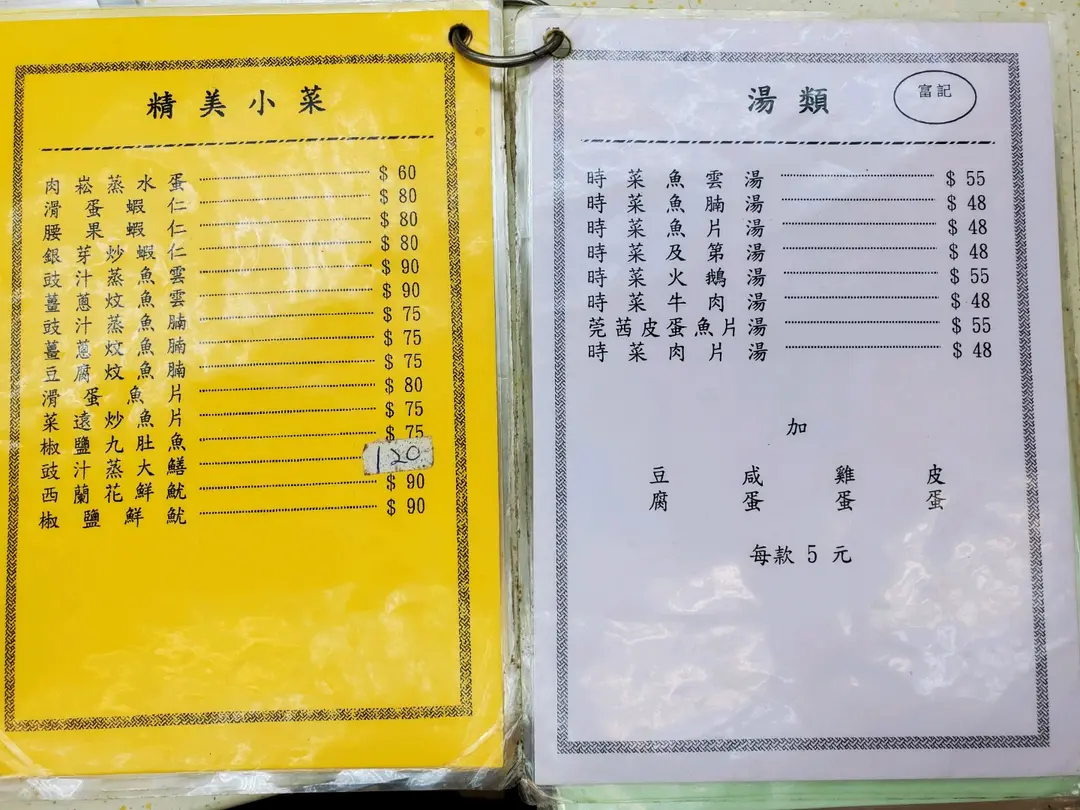 精美小菜
肉崧蒸水蛋 $ 60
滑蛋蝦仁 $ 80
腰果蝦仁 $ 80
銀芽炒蝦仁 $ 80
豉汁蒸魚雲 $ 90
薑蔥炆魚雲 $ 90
豉汁蒸魚腩 $ 75
薑蔥炆魚腩 $ 75
豆腐炆魚腩 $ 75
滑蛋魚片 $ 80
菜遠炒魚片 $ 75
椒鹽九肚魚 $ 75
豉汁蒸大鱔 120
西蘭花鮮魷 $ 90
椒鹽鮮魷 $ 90
湯類
富記
時菜魚雲湯 $ 55
時菜魚腩湯 $ 48
時菜魚片湯 $ 48
時菜及第湯 $ 48
時菜火鵝湯 $ 55
時菜牛肉湯 $ 48
莞茜皮蛋魚片湯 $ 55
時菜肉片湯 $ 48
加
豆腐 咸蛋 雞蛋 皮蛋
每款 5 元